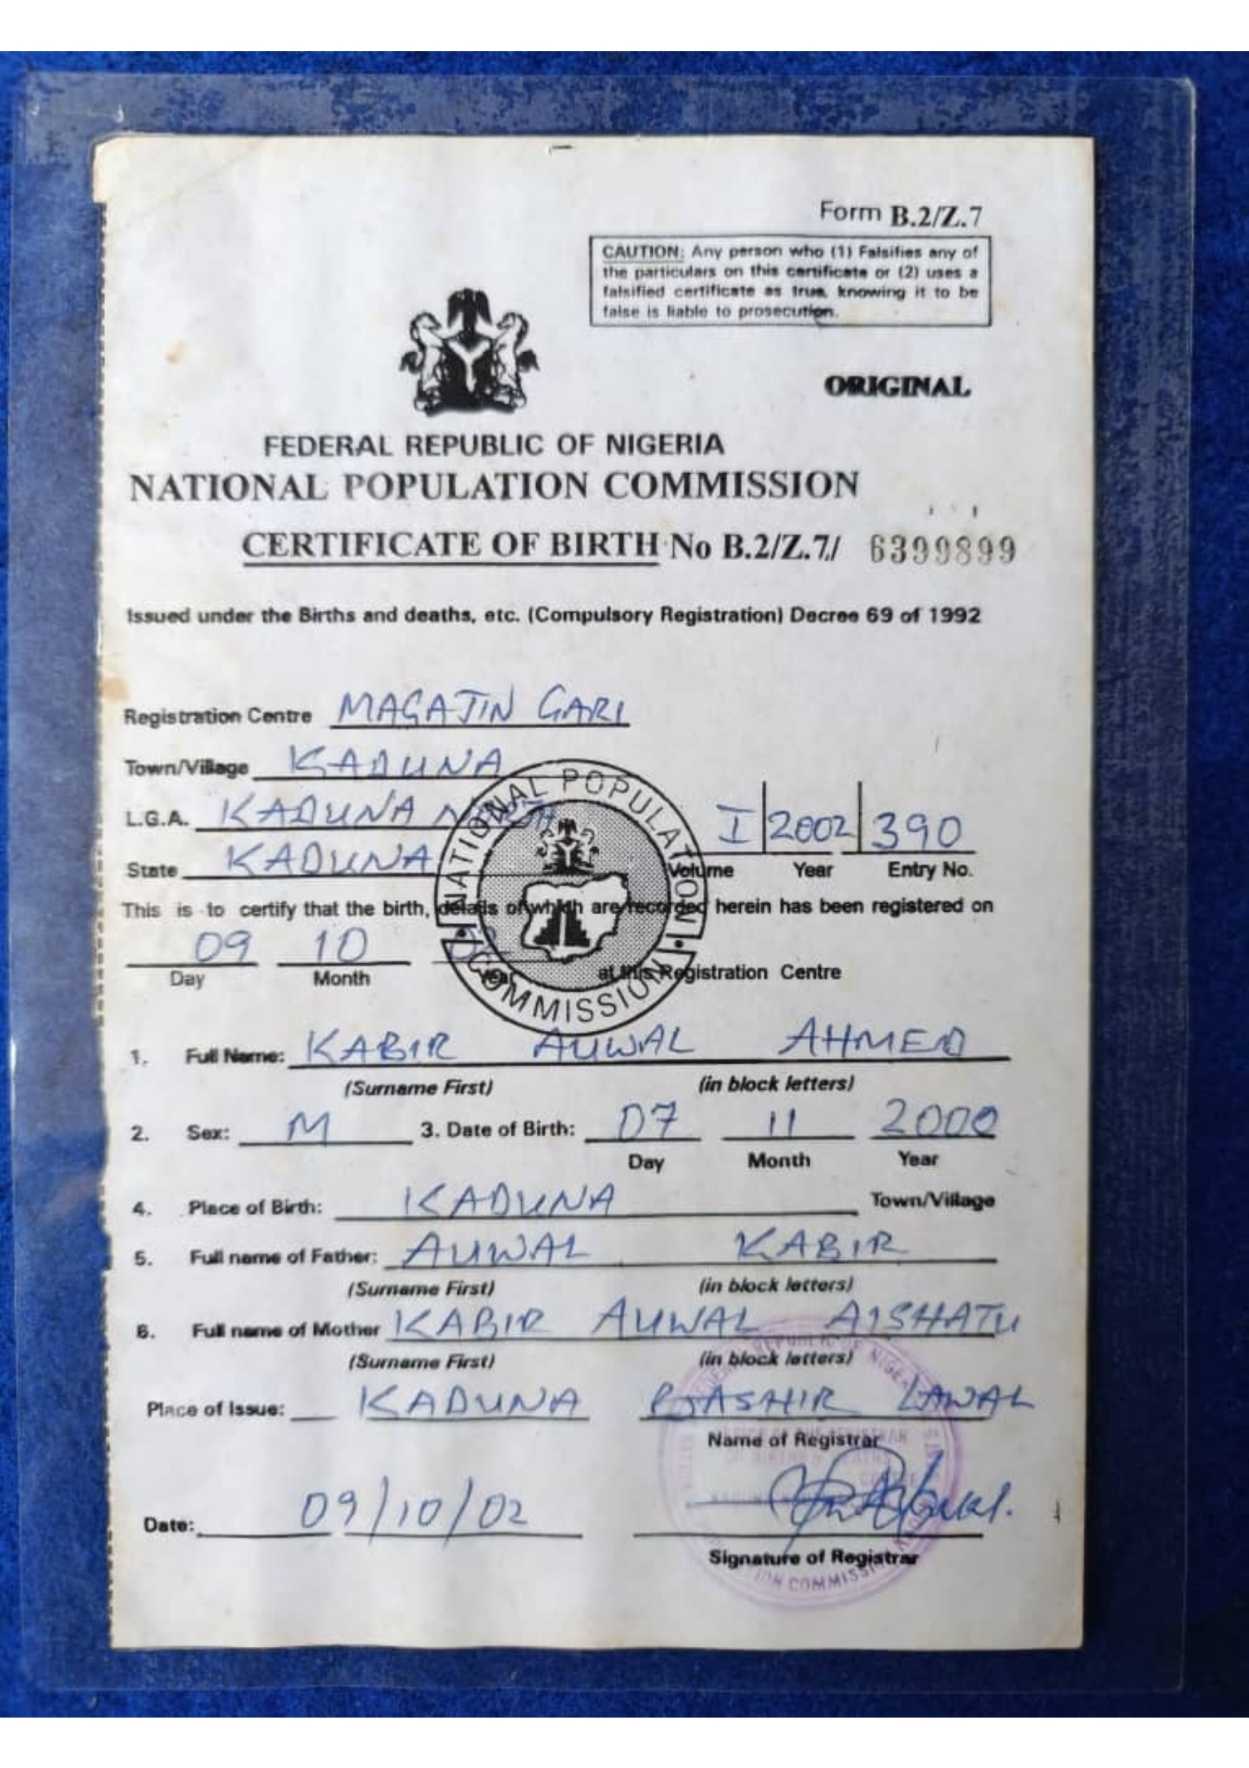 Form B.2/Z.7
CAUTION: Any person who (1) Falsifies any of
the particulars on this certificate or (2) uses a
falsified certificate as true, knowing it to be
false is liable to prosecution.
ORIGINAL
FEDERAL REPUBLIC OF NIGERIA
NATIONAL POPULATION COMMISSION
CERTIFICATE OF BIRTH No B.2/Z.7/ 6399899
Issued under the Births and deaths, etc. (Compulsory Registration) Decree 69 of 1992
Registration Centre MAGAJIN GARI
Town/Village KADUNA
L.G.A. KADUNA NORTH
I 2002 390
State KADUNA
Volume Year Entry No.
NATIONAL POPULATION COMMISSION
This is to certify that the birth, details of which are recorded herein has been registered on
09 10 02
Day Month Year at this Registration Centre
1. Full Name: KABIR AUWAL AHMED
(Surname First) (in block letters)
2. Sex: M 3. Date of Birth: 07 11 2000
Day Month Year
4. Place of Birth: KADUNA Town/Village
5. Full name of Father: AUWAL KABIR
(Surname First) (in block letters)
6. Full name of Mother KABIR AUWAL AISHATU
(Surname First) (in block letters)
Place of Issue: KADUNA BASHIR LAWAL
Name of Registrar
Date: 09/10/02
Signature of Registrar